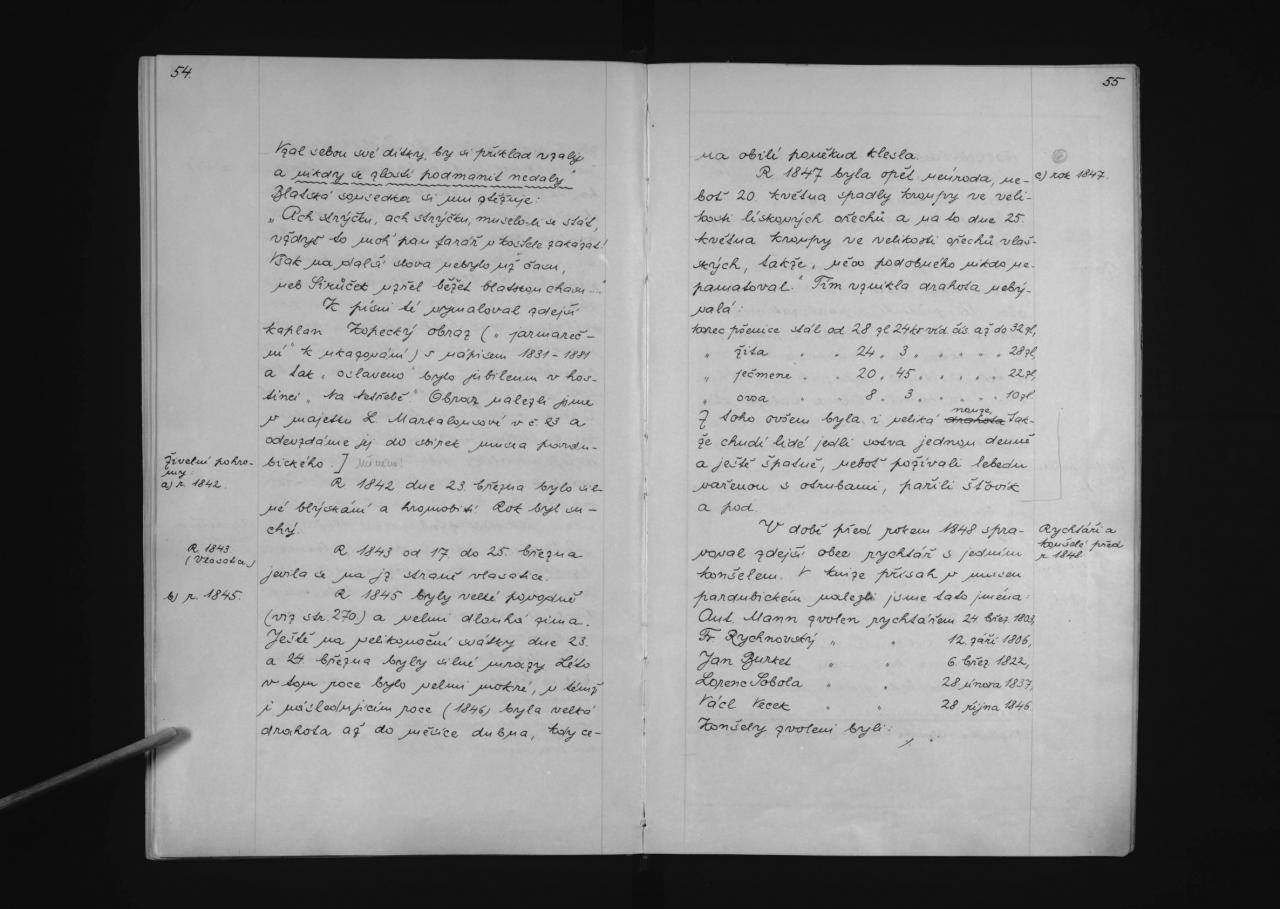 54.
Vzal sebou své dítky, by si příklad vzaly
a nikdy se zlosti podmanit nedaly"
Blatská sousedka si mu stěžuje:
„Ach strýčku, ach strýčku, muselo-li se stát,
vždyť to moh' pan farář v kostele zakázat!
Však na další slova nebylo už času,
neb Sirůček uzřel běžet blatskou chasu..."
K písni té vymaloval zdejší
kaplan Kopecký obraz („jarmareč-
ní" k ukazování) s nápisem 1831-1881
a tak „oslaveno" bylo jubileum v hos-
tinci „Na tetřebě." Obraz nalezli jsme
v majetku L. Markalousové v č 23 a
odevzdáme jej do sbírek musea pardu-
bického.]
Živelní pohro-
my:
a) r. 1842.
R 1842 dne 23. března bylo sil-
né blýskání a hromobití. Rok byl su-
chý.
R. 1843
(Vlasatice)
R 1843 od 17. do 25. března
jevila se na jz. straně vlasatice.
b) r. 1845.
R 1845 byly velké povodně
(viz str. 270.) a velmi dlouhá zima.
Ještě na velikonoční svátky dne 23.
a 24. března byly silné mrazy. Léto
v tom roce bylo velmi mokré, v témž
i následujícím roce (1846) byla velká
drahota až do měsíce dubna, kdy ce-
55
na obilí poněkud klesla.
c) rok 1847.
R 1847 byla opět neúroda, ne-
boť 20. května spadly kroupy ve veli-
kosti lískových ořechů a na to dne 25.
května kroupy ve velikosti ořechů vlaš-
ských, takže „něco podobného nikdo ne-
pamatoval." Tím vznikla drahota neby-
valá:
korec pšenice stál od 28 zl 24 kr víd. čís. až do 32 zl,
„ žita „ „ 24 „ 3 „ „ „ „ „ 28 zl,
„ ječmene „ „ 20 „ 45 „ „ „ „ „ 22 zl,
„ ovsa „ „ 8 „ 3 „ „ „ „ „ 10 zl.
Z toho ovšem byla i veliká drahota nouze, tak-
že chudí lidé jedli sotva jednou denně
a ještě špatně, neboť požívali lebedu
vařenou s otrubami, pařili šťovík
a pod.
Rychtáři a
konšelé před
r 1848.
V době před rokem 1848 spra-
voval zdejší obec rychtář s jedním
konšelem. V knize přísah v museu
pardubickém nalezli jsme tato jména:
Ant. Mann zvolen rychtářem 24. břez. 1803,
Fr Rychnovský „ „ 12. září 1806,
Jan Burket „ „ 6. břez. 1822,
Lorenc Sobola „ „ 28. února 1837,
Václ Vecek „ „ 28 října 1846.
Konšely zvoleni byli: